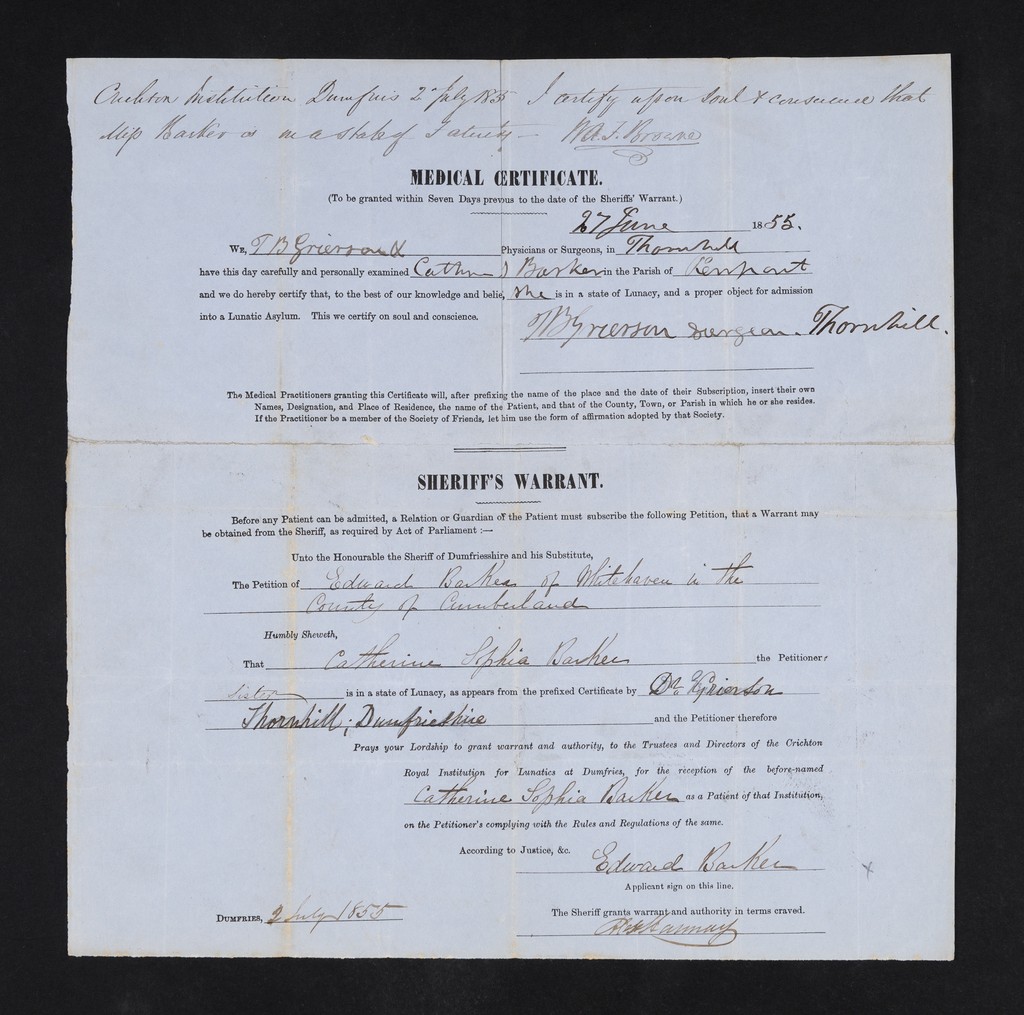 Crichton Institution Dumfries 2d July 1855 I certify upon Soul & conscience that
Miss Barker is in a state of Fatuity – W.A.F. Browne
MEDICAL CERTIFICATE.
(To be granted within Seven Days previous to the date of the Sheriffs' Warrant.)
27 June 1855.
WE, T B Grierson Physicians or Surgeons, in Thornhill
have this day carefully and personally examined Cathrn S Barker in the Parish of
and we do hereby certify that, to the best of our knowledge and belief, she is in a state of Lunacy, and a proper object for admission
into a Lunatic Asylum. This we certify on soul and conscience.
TB Grierson surgeon. Thornhill.
The Medical Practitioners granting this Certificate will, after prefixing the name of the place and the date of their Subscription, insert their own
Names, Designation, and Place of Residence, the name of the Patient, and that of the County, Town, or Parish in which he or she resides.
If the Practitioner be a member of the Society of Friends, let him use the form of affirmation adopted by that Society.
SHERIFF'S WARRANT.
Before any Patient can be admitted, a Relation or Guardian of the Patient must subscribe the following Petition, that a Warrant may
be obtained from the Sheriff, as required by Act of Parliament :—
Unto the Honourable the Sheriff of Dumfriesshire and his Substitute,
The Petition of Edward Barker of Whitehaven in the
County of Cumberland
Humbly Sheweth,
That Catherine Sophia Barker the Petitioner's
Sister is in a state of Lunacy, as appears from the prefixed Certificate by Dr. Grierson
Thornhill, Dumfriesshire and the Petitioner therefore
Prays your Lordship to grant warrant and authority, to the Trustees and Directors of the Crichton
Royal Institution for Lunatics at Dumfries, for the reception of the before-named
Catherine Sophia Barker as a Patient of that Institution,
on the Petitioner's complying with the Rules and Regulations of the same.
According to Justice, &c. Edward Barker
Applicant sign on this line.
DUMFRIES, 2 July 1855 The Sheriff grants warrant and authority in terms craved.